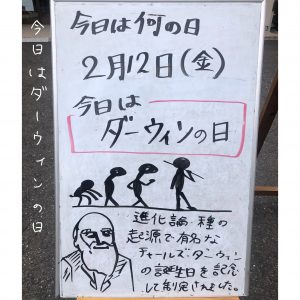 今日は何の日
2月12日(金)
今日は
ダーウィンの日
進化論・種の
起源で有名な
チャールズ・ダーウィン
の誕生日を記念
して制定されました。
今日はダーウィンの日